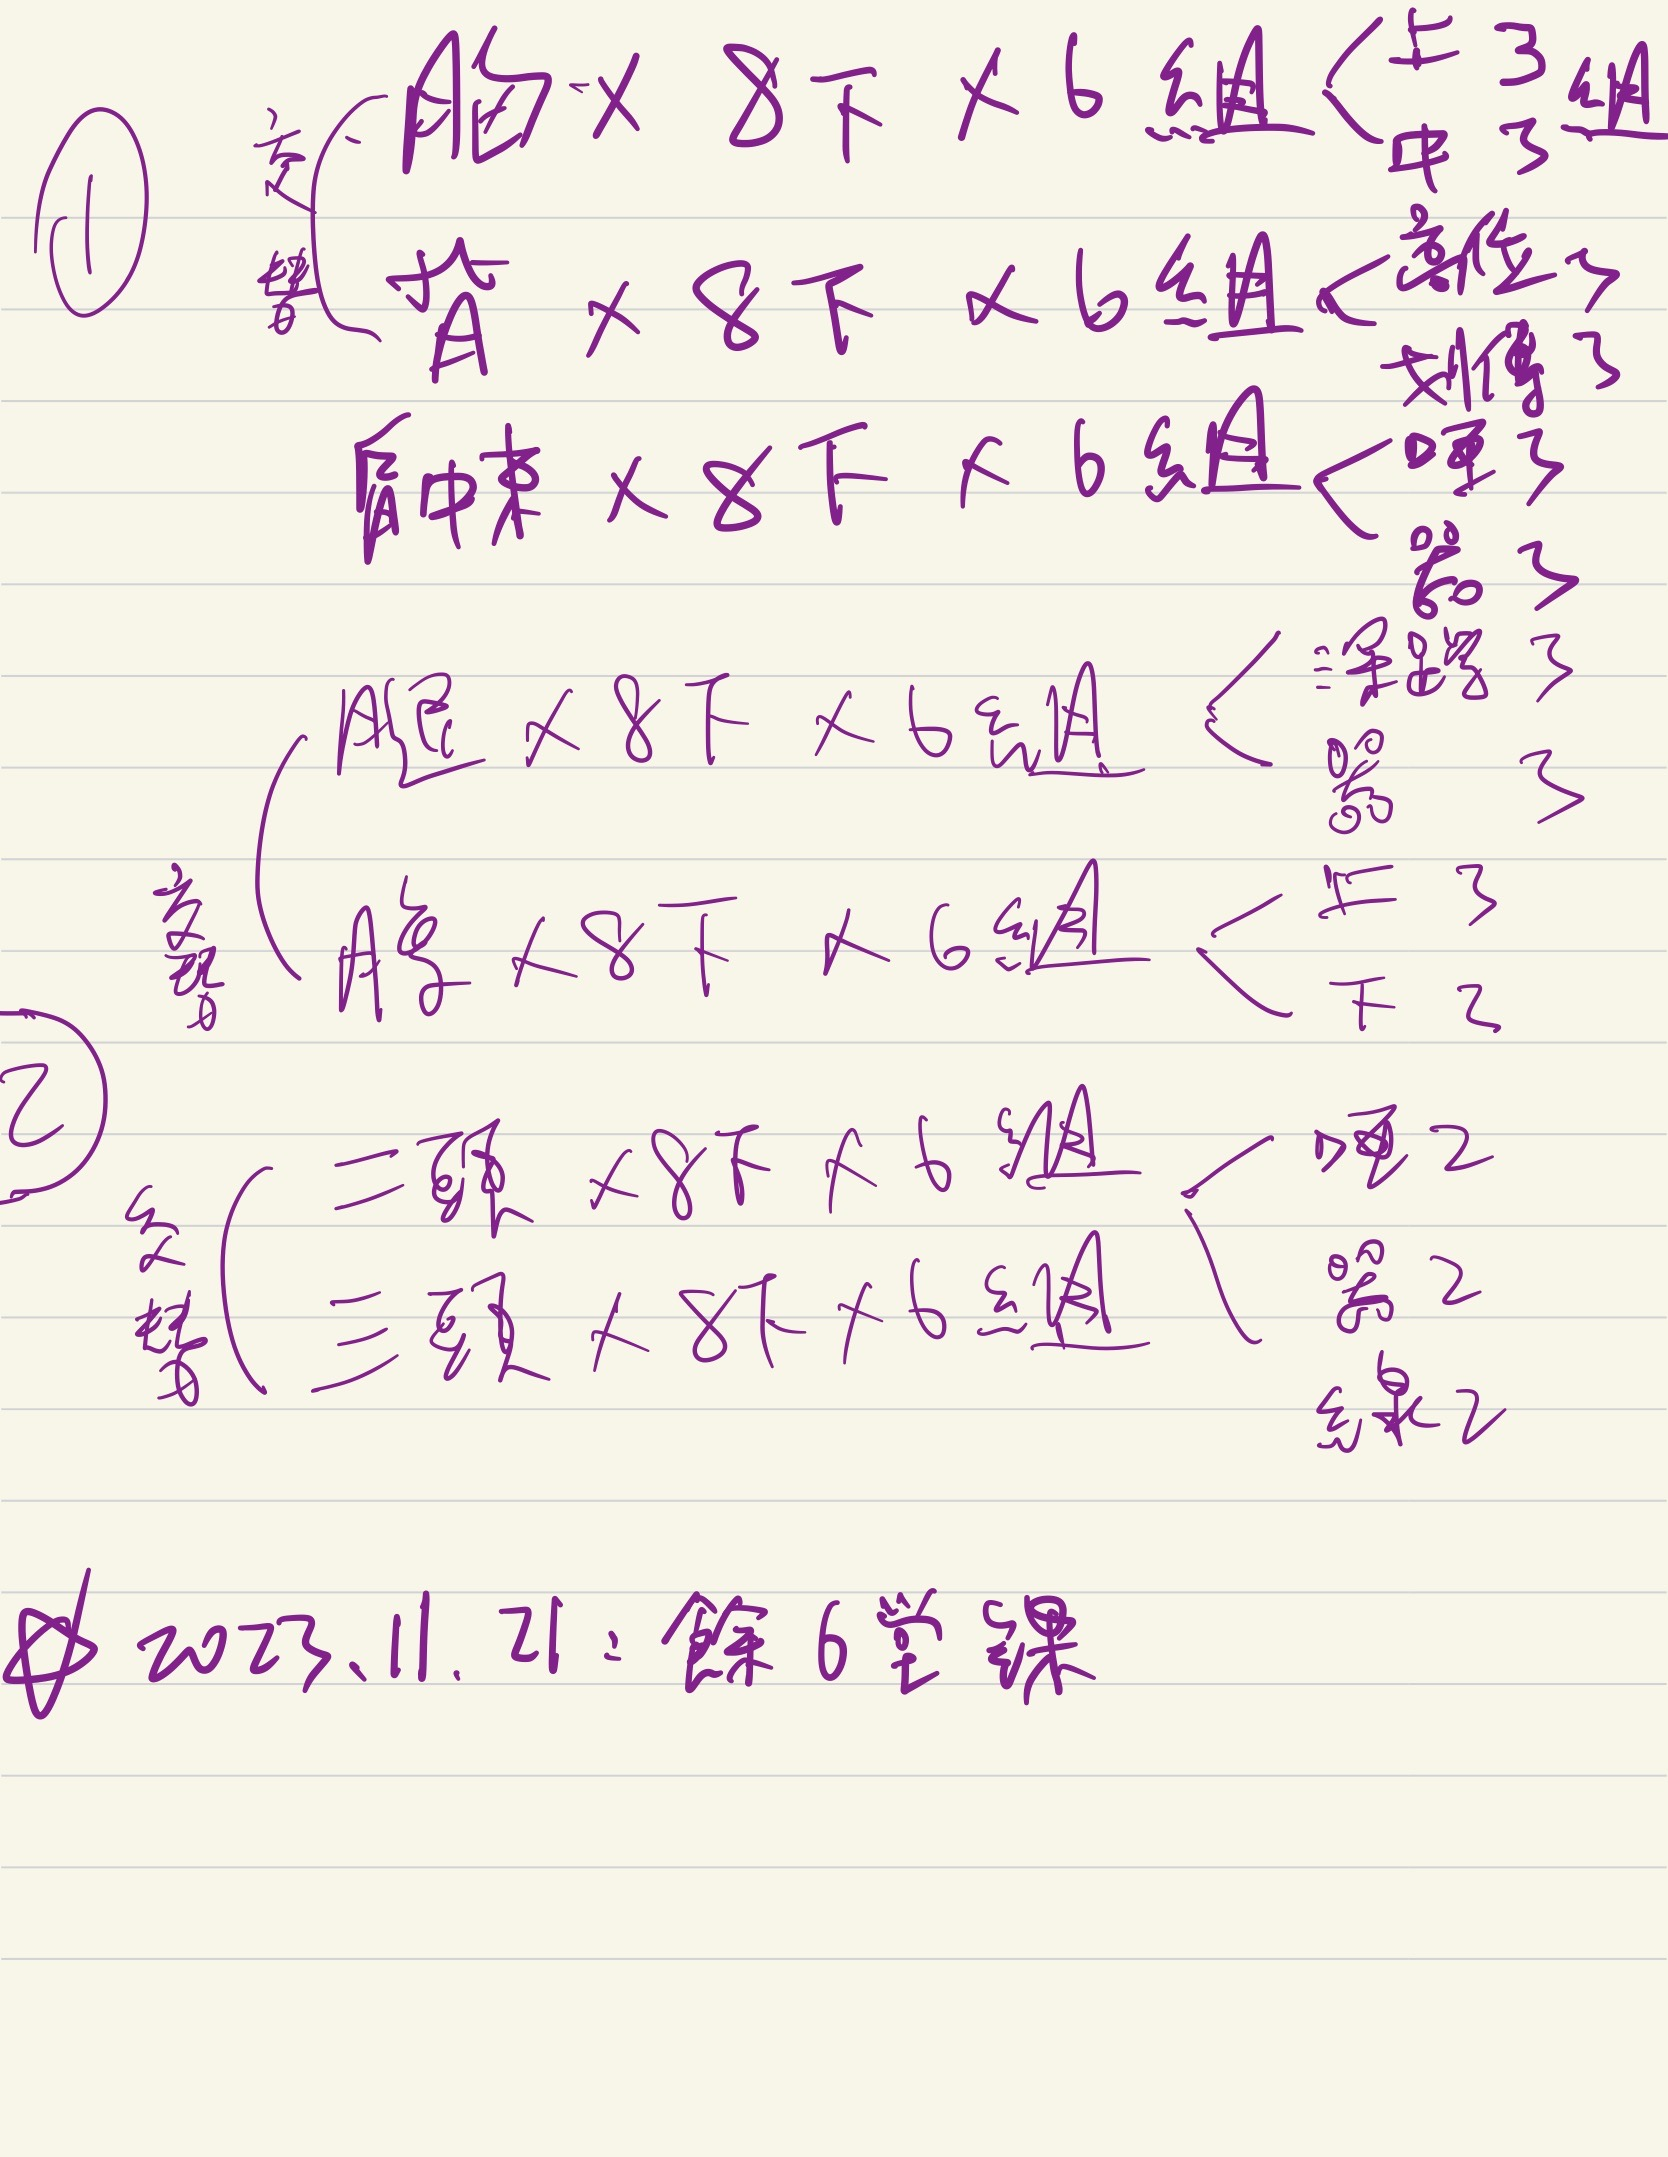 ①
交替
胸 × 8下 × 6組 < 上 3組
中 3
背 × 8下 × 6組 < 高位 3
划傳 3
肩中束 × 8下 × 6組 < 啞 3
器 3
腿 × 8下 × 6組 < 深蹲 3
器 3
交替
腹 × 8下 × 6組 < 上 3
下 3
②
交替
二頭 × 8下 × 6組 < 啞 2
三頭 × 8下 × 6組
器 2
線 2
☆ 2023.11.21: 餘6堂課